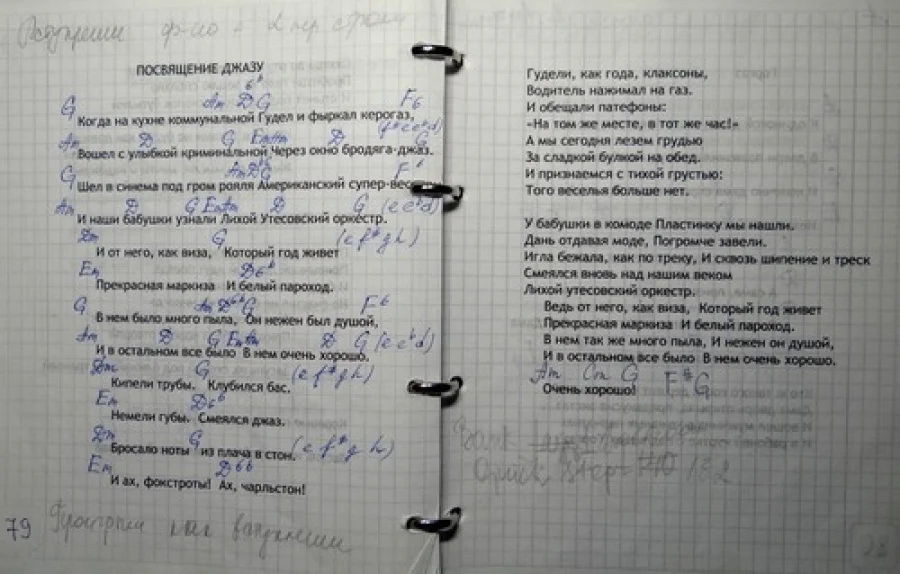 ПОСВЯЩЕНИЕ ДЖАЗУ
G Am D6b G F6
Когда на кухне коммунальной Гудел и фыркал керогаз,
Am D G Em Am D G
Вошел с улыбкой криминальной Через окно бродяга-джаз.
G Am D G F6
Шел в синема под гром рояля Американский
Am D G Em Am D G (e e d)
И наши бабушки узнали Лихой Утесовский оркестр.
Dm G (e f# g h)
И от него, как виза, Который год живет
Em D6b
Прекрасная маркиза И белый пароход.
G Am D6b G F6
В нем было много пыла, Он нежен был душой,
Am D G Em Am D G
И в остальном все было В нем очень хорошо.
Dm G (e f# g h)
Кипели трубы. Клубился бас.
Em D6b
Немели губы. Смеялся джаз.
Dm G (e f# g h)
Бросало ноты из плача в стон.
Em D6b
И ах, фокстроты! Ах, чарльстон!
79 как
Гудели, как года, клаксоны,
Водитель нажимал на газ.
И обещали патефоны:
«На том же месте, в тот же час!»
А мы сегодня лезем грудью
За сладкой булкой на обед.
И признаемся с тихой грустью:
Того веселья больше нет.
У бабушки в комоде Пластинку мы нашли.
Дань отдавая моде, Погромче завели.
Игла бежала, как по треку, И сквозь шипение и треск
Смеялся вновь над нашим веком
Лихой утесовский оркестр.
Ведь от него, как виза, Который год живет
Прекрасная маркиза И белый пароход.
В нем так же много пыла, И нежен он душой,
И в остальном все было В нем очень хорошо.
Am Cm G F# G
Очень хорошо!
Quick step